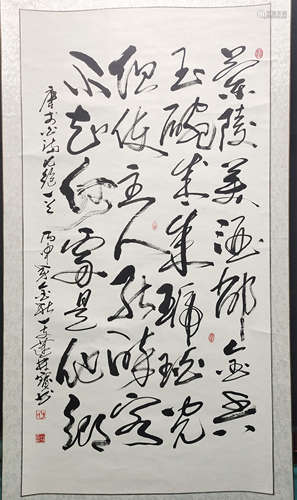 蘭陵美酒郁金香
玉碗盛来琥珀光
但使主人能醉客
不知何處是他鄉
唐李白詩七絕一首 丙申 金秋 書